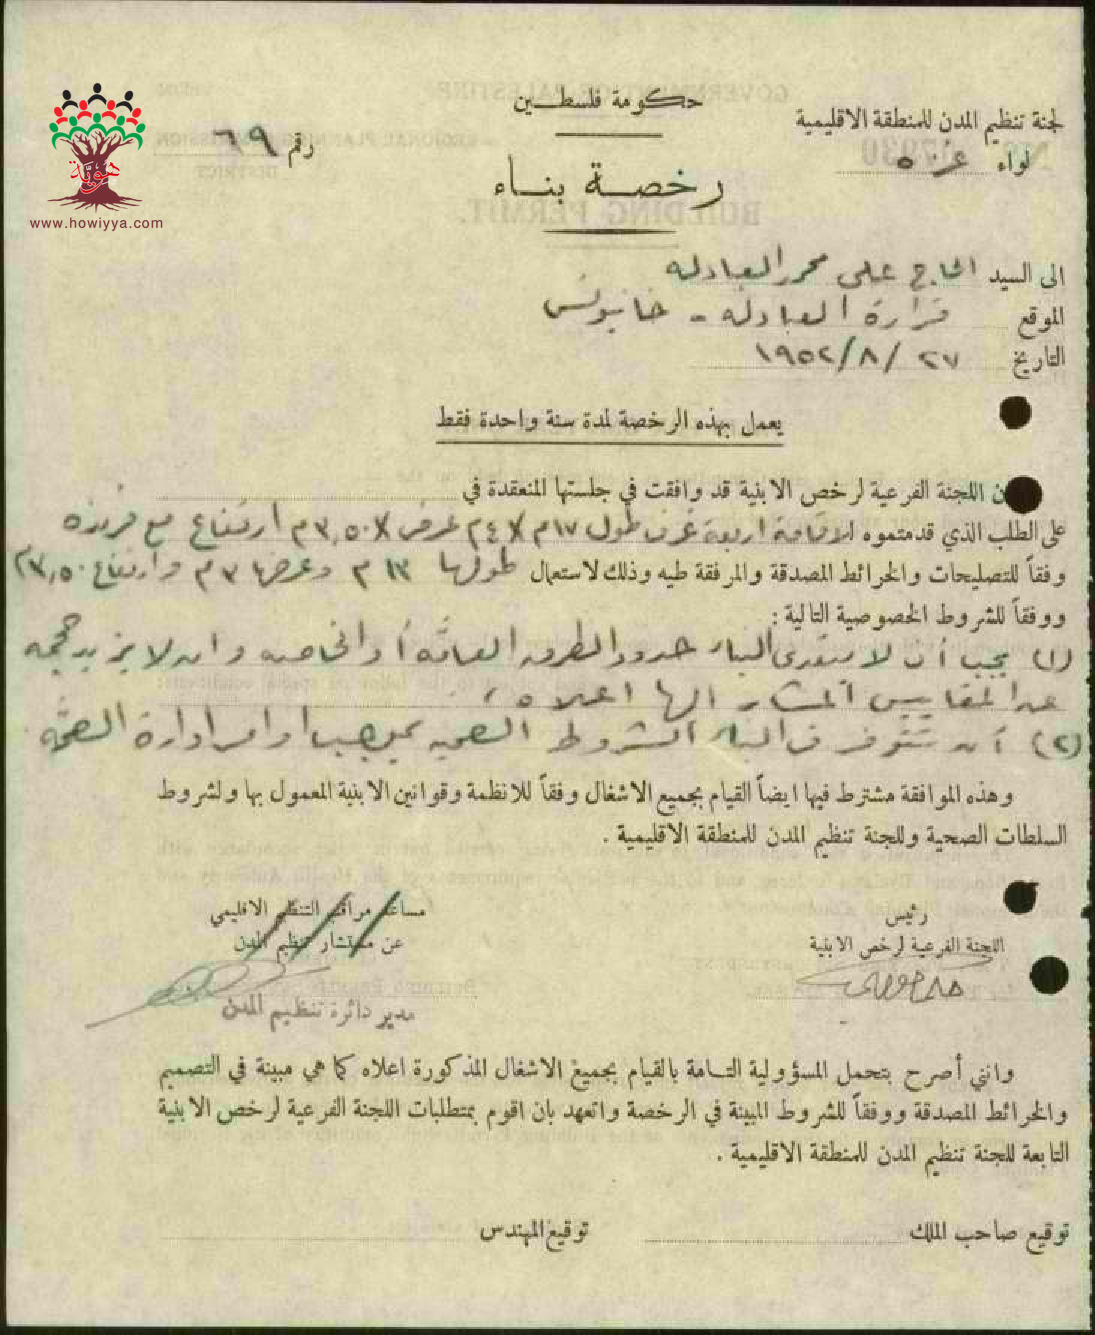 حكومة فلسطين
لجنة تنظيم المدن للمنطقة الاقليمية
لواء غزة
رقم ٦٩
هوية
www.howiyya.com
رخصة بناء
الى السيد الحاج علي محمد العبادله
الموقع قرارة العبادله - خانيونس
التاريخ ٢٧ / ٨ / ١٩٥٢
يعمل بهذه الرخصة لمدة سنة واحدة فقط
ن اللجنة الفرعية لرخص الابنية قد وافقت في جلستها المنعقدة في
على الطلب الذي قدمتموه لاقامة اربعة غرف طول ١٧م X ٤م عرض X ٣,٥٠م ارتفاع مع فرنده
وفقاً للتصليحات والخرائط المصدقة والمرفقة طيه وذلك لاستعمال طولها ١٣م وعرضها ٣م وارتفاع ٣,٥٠م
ووفقاً للشروط الخصوصية التالية :
(١) يجب أن لا يتعدى البناء حدود الطرق العامّة أو الخاصه وان لا يزيد حجمه
عن المقاييس المشار اليها اعلاه ،
(٢) أن تتوفر في البناء الشروط الصحيه بموجب اوامر ادارة الصحّة
وهذه الموافقة مشترط فيها ايضاً القيام بجميع الاشغال وفقاً للانظمة وقوانين الابنية المعمول بها ولشروط
السلطات الصحية وللجنة تنظيم المدن للمنطقة الاقليمية .
رئيس
اللجنة الفرعية لرخص الابنية
مساعد مراقب التنظيم الاقليمي
عن مستشار تنظيم المدن
مدير دائرة تنظيم المدن
وانني أصرح بتحمل المسؤولية التامة بالقيام بجميع الاشغال المذكورة اعلاه كما هي مبينة في التصميم
والخرائط المصدقة ووفقاً للشروط المبينة في الرخصة واتعهد بان اقوم بمتطلبات اللجنة الفرعية لرخص الابنية
التابعة للجنة تنظيم المدن للمنطقة الاقليمية .
توقيع صاحب الملك
توقيع المهندس